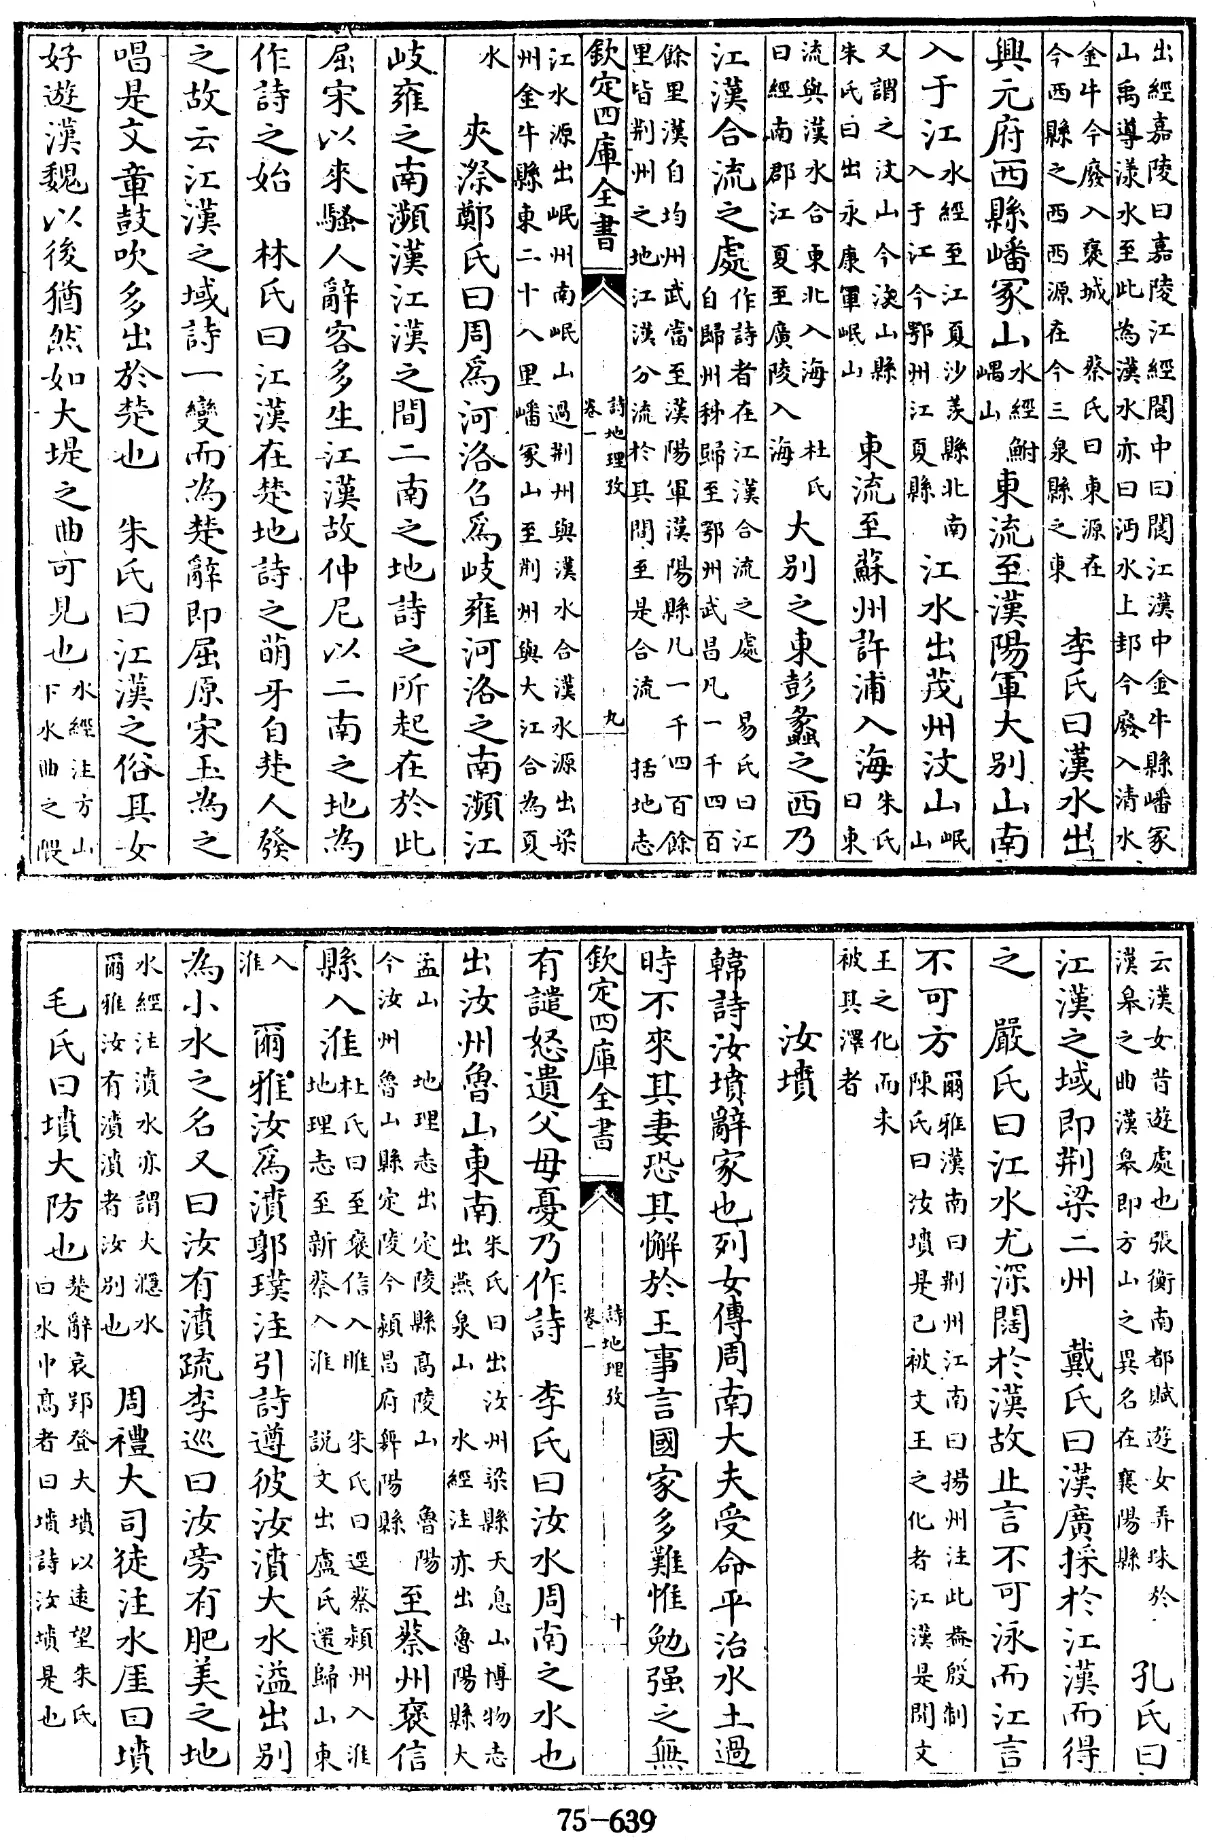 出經嘉陵曰嘉陵江經閬中曰閬江漢中金牛縣嶓冢
山禹導漾水至此為漢水亦曰沔水上邽今廢入清水
金牛今廢入褒城 蔡氏曰東源在
今西縣之西西源在今三泉縣之東 李氏曰漢水出
興元府西縣嶓冢山水經鮒嵎山東流至漢陽軍大別山南
入于江水經至江夏沙羨縣北南入于江今鄂州江夏縣 江水出茂州汶山岷山
又謂之汶山今汶山縣
朱氏曰出永康軍岷山 東流至蘇州許浦入海朱氏曰東
流與漢水合東北入海 杜氏
曰經南郡江夏至廣陵入海 大別之東彭蠡之西乃
江漢合流之處作詩者在江漢合流之處 易氏曰江自歸州秭歸至鄂州武昌凡一千四百
餘里漢自均州武當至漢陽軍漢陽縣凡一千四百餘
里皆荆州之地江漢分流於其間至是合流 括地志
欽定四庫全書 詩地理攷 卷一 九
江水源出岷州南岷山過荆州與漢水合漢水源出梁
州金牛縣東二十八里嶓冢山至荆州與大江合為夏
水 夾漈鄭氏曰周爲河洛召爲岐雍河洛之南瀕江
岐雍之南瀕漢江漢之間二南之地詩之所起在於此
屈宋以來騷人辭客多生江漢故仲尼以二南之地為
作詩之始 林氏曰江漢在楚地詩之萌牙自楚人發
之故云江漢之域詩一變而為楚辭即屈原宋玉為之
唱是文章鼓吹多出於楚也 朱氏曰江漢之俗其女
好遊漢魏以後猶然如大堤之曲可見也水經注方山下水曲之隈
云漢女昔遊處也張衡南都賦遊女弄珠於
漢臯之曲漢臯即方山之異名在襄陽縣 孔氏曰
江漢之域即荆梁二州 戴氏曰漢廣採於江漢而得
之 嚴氏曰江水尤深闊於漢故止言不可泳而江言
不可方爾雅漢南曰荆州江南曰揚州注此葢殷制陳氏曰汝墳是已被文王之化者江漢是聞文
王之化而未
被其澤者
汝墳
韓詩汝墳辭家也列女傳周南大夫受命平治水土過
時不來其妻恐其懈於王事言國家多難惟勉强之無
欽定四庫全書 詩地理攷 卷一 十
有譴怒遺父母憂乃作詩 李氏曰汝水周南之水也
出汝州魯山東南朱氏曰出汝州梁縣天息山博物志出燕泉山 水經注亦出魯陽縣大
孟山 地理志出定陵縣高陵山 魯陽
今汝州魯山縣定陵今潁昌府舞陽縣 至蔡州褒信
縣入淮杜氏曰至褒信入睢 朱氏曰逕蔡潁州入淮地理志至新蔡入淮 說文出盧氏還歸山東
入淮 爾雅汝爲濆郭璞注引詩遵彼汝濆大水溢出別
為小水之名又曰汝有濆疏李巡曰汝旁有肥美之地
水經注濆水亦謂大㶏水
爾雅汝有濆濆者汝別也 周禮大司徒注水厓曰墳
毛氏曰墳大防也楚辭哀郢登大墳以遠望朱氏曰水中高者曰墳詩汝墳是也
75-639